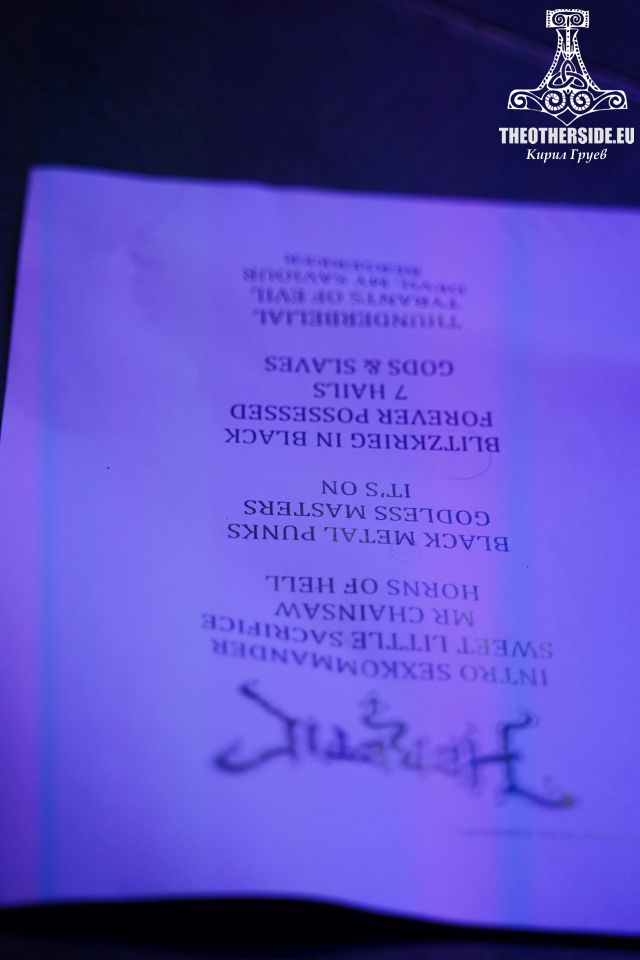 THEOTHERSIDE.EU
Кирил Груев
HERETIC
INTRO SEXKOMMANDER
SWEET LITTLE SACRIFICE
MR CHAINSAW
HORNS OF HELL
BLACK METAL PUNKS
GODLESS MASTERS
IT'S ON
BLITZKRIEG IN BLACK
FOREVER POSSESSED
7 HAILS
GODS & SLAVES
THUNDERBELIAL
TYRANTS OF EVIL
DEVIL MY SAVIOUR